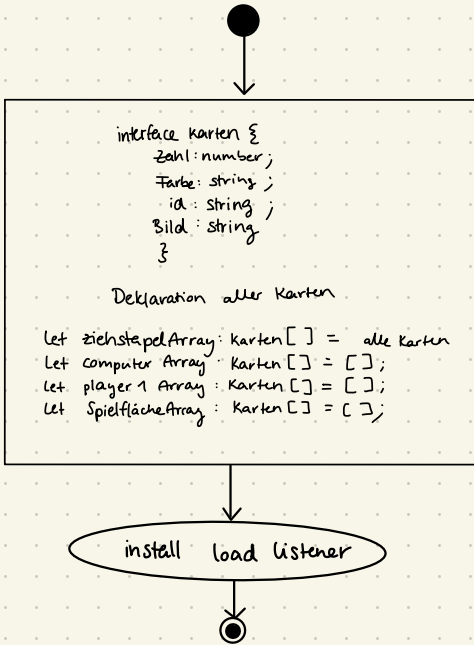 interface Karten {
Zahl : number ;
Farbe : string ;
id : string ;
Bild : string
}
Deklaration aller Karten
Let ziehstapelArray : Karten [ ] = alle Karten
Let computer Array : Karten [ ] = [ ] ;
Let player 1 Array : Karten [ ] = [ ] ;
Let SpielflächeArray : Karten [ ] = [ ] ;
install load listener